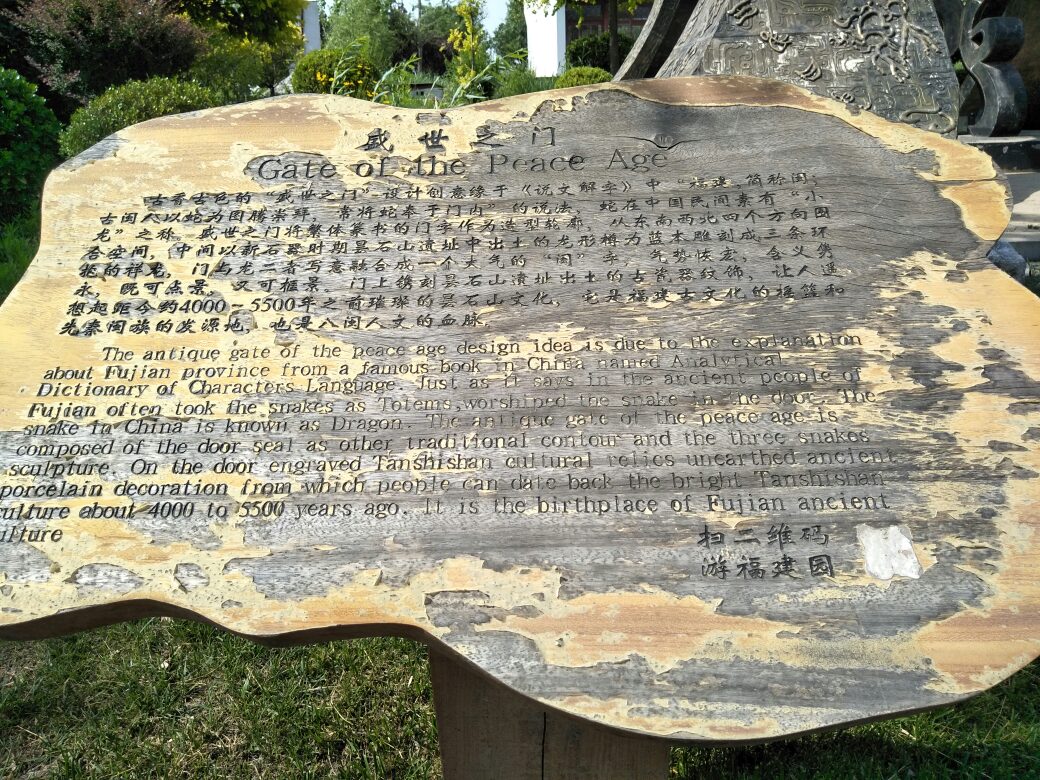 盛世之门
Gate of the Peace Age
古香古色的“盛世之门”设计创意缘于《说文解字》中“福建,简称闽;
古闽人以蛇为图腾崇拜,常将蛇奉于门内”的说法,蛇在中国民间素有“小
龙”之称,盛世之门将整体篆书的门字作为造型轮廓,从东南西北四个方向围
合空间,中间以新石器时期昙石山遗址中出土的龙形樽为蓝本雕刻成三条环
抱的祥龙,门与龙二者写意融合成一个大气的“闽”字,气势恢宏,含义隽
永,既可点景,又可框景,门上镌刻昙石山遗址出土的古瓷器纹饰,让人遥
想起距今约4000~5500年之前璀璨的昙石山文化,它是福建古文化的摇篮和
先秦闽族的发源地,也是八闽人文的血脉。
The antique gate of the peace age design idea is due to the explanation
about Fujian province from a famous book in China named Analytical
Dictionary of Characters Language. Just as it says in the ancient people of
Fujian often took the snakes as Totems,worshiped the snake in the door. The
snake in China is known as Dragon. The antique gate of the peace age is
composed of the door seal as other traditional contour and the three snakes
sculpture. On the door engraved Tanshishan cultural relics unearthed ancient
porcelain decoration from which people can date back the bright Tanshishan
culture about 4000 to 5500 years ago. It is the birthplace of Fujian ancient
ulture
扫二维码
游福建园